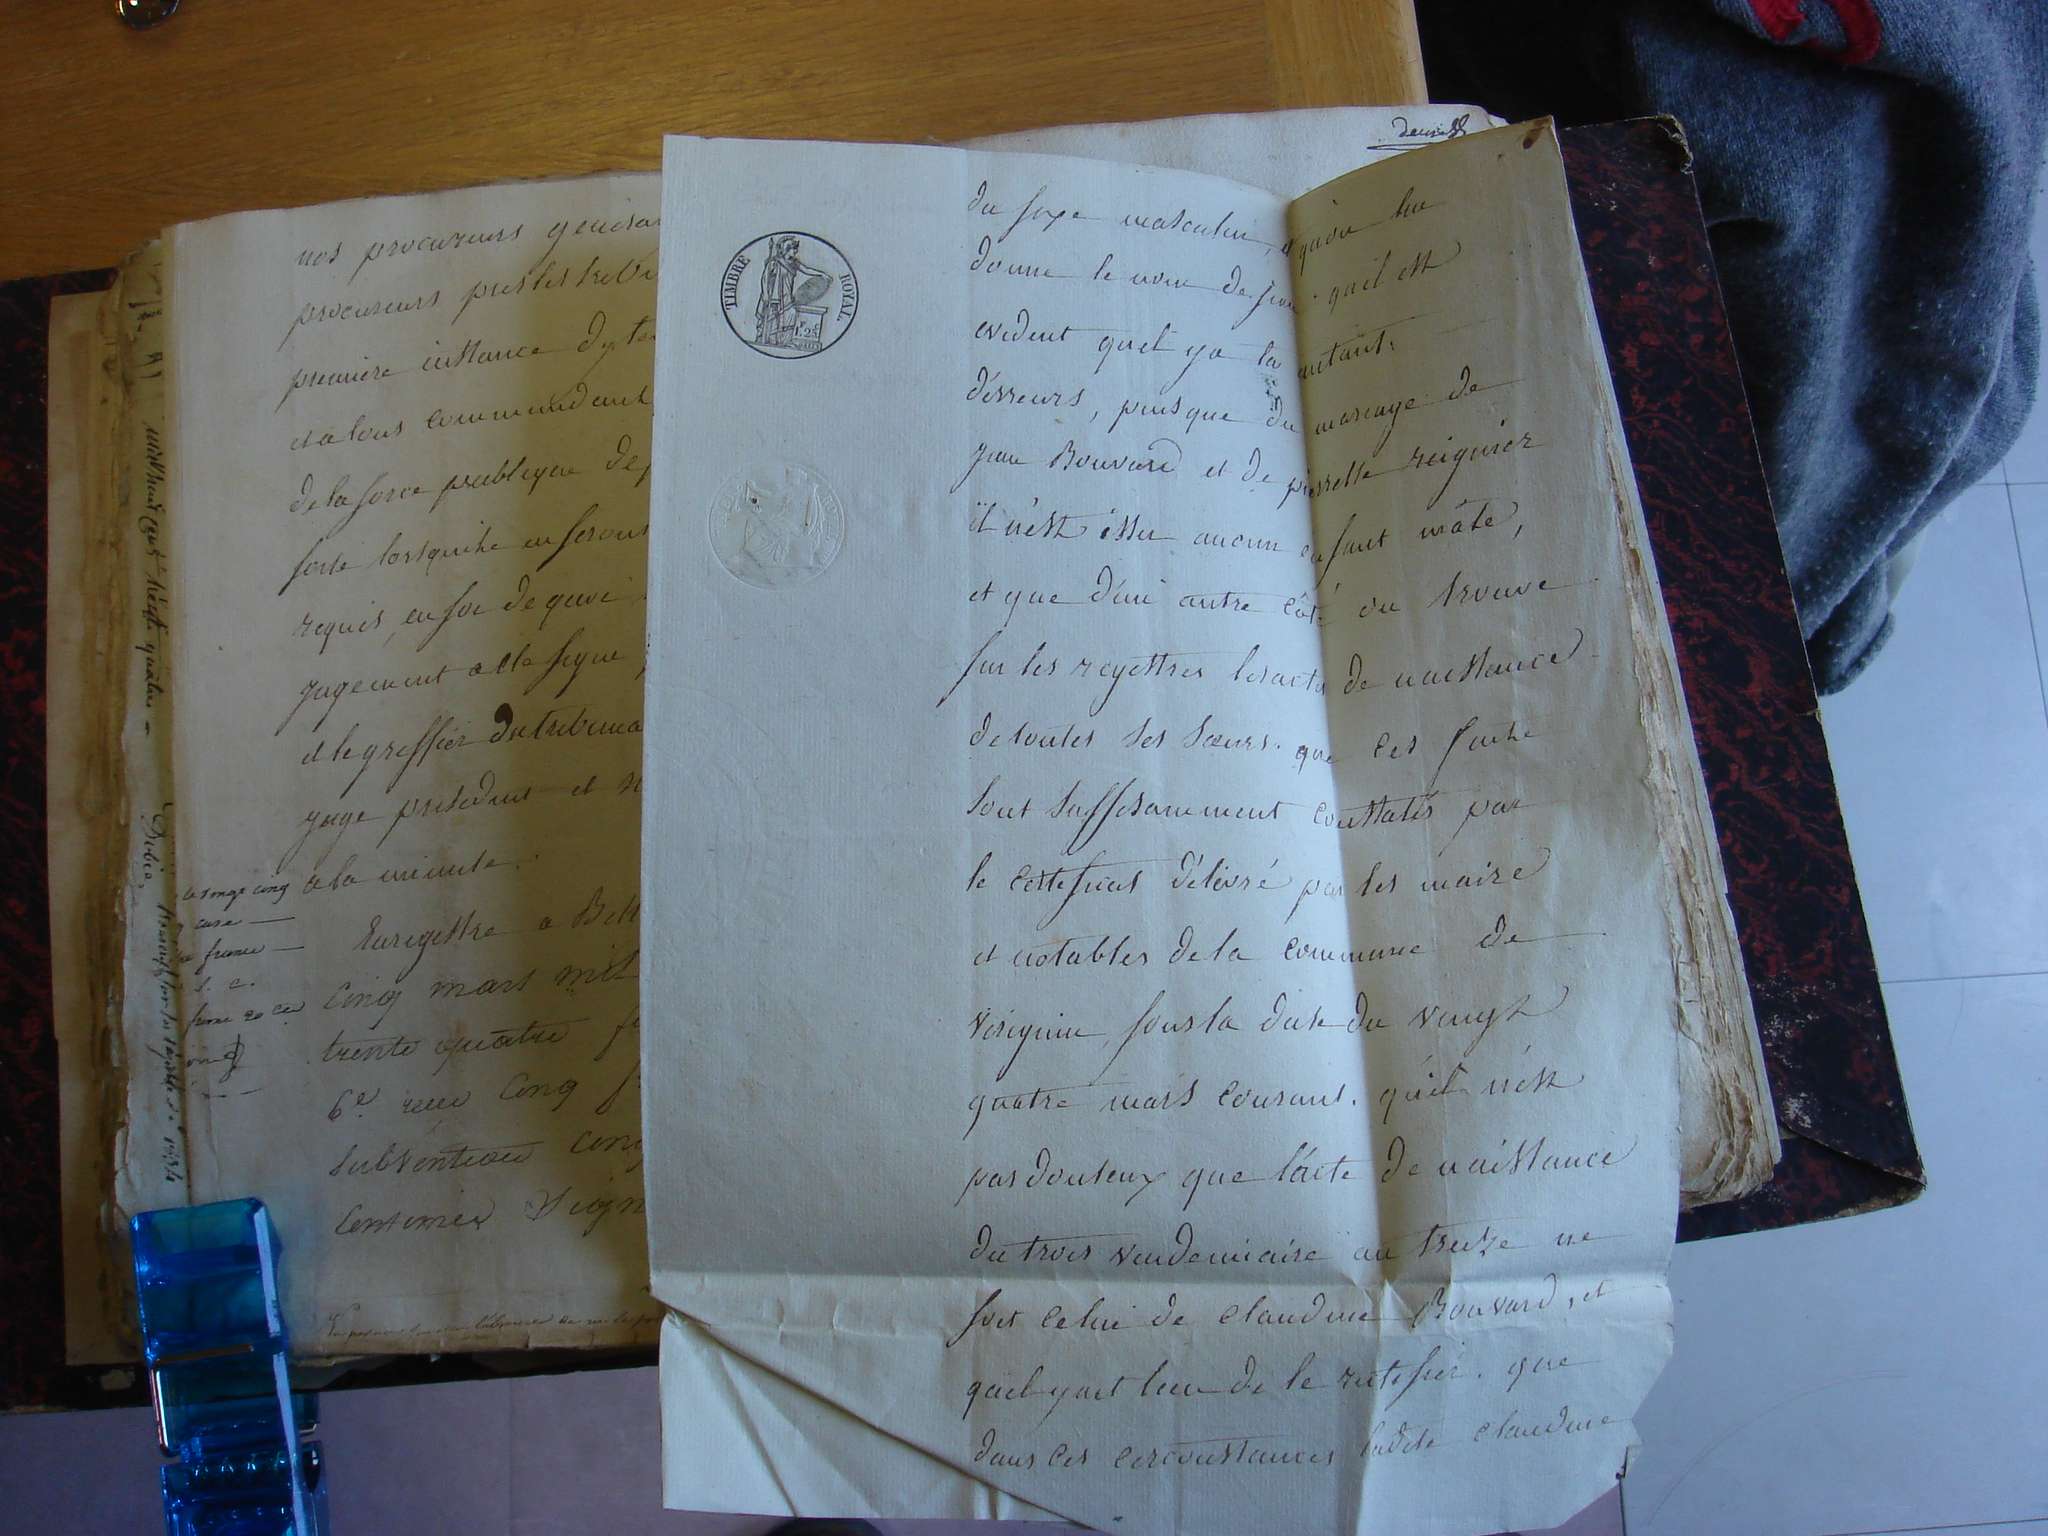 nos procureurs généra
procureurs pres les tribu
premiere instance dy te
et a tous commandant
de la force publique de p
forte lorsquils en seront
requis, en foi de quoi
jugement a ete signe
et le greffier du tribuna
juge president et
a la minute.
Enregistre a Bell
cinq mars mil
trente quatre f
6e. recu cinq f
subvention cinq
centimes Sign
mil huit cent trente quatre
deux
TIMBRE ROYAL.
du sexe masculin, et qu'on lui
donne le nom de jean. qu'il est
evident quil ya la autant
d'erreurs, puisque du mariage de
jean Bouvard et de pierrette reignier
il n'est issu aucun enfant mâle,
et que d'un autre côté on trouve
sur les regestres les actes de naissance
de toutes ses sœurs. que ces faits
sont suffisamment constatés par
le certificat délivré par les maire
et notables de la commune de
Vérignin, sous la date du vingt
quatre mars courant. qu'il n'est
pas douteux que l'acte de naissance
du trois vendemiaire an treize ne
soit celui de claudine Bouvard, et
quil y ait lieu de le rectifier. que
dans ces circonstances ladite claudine